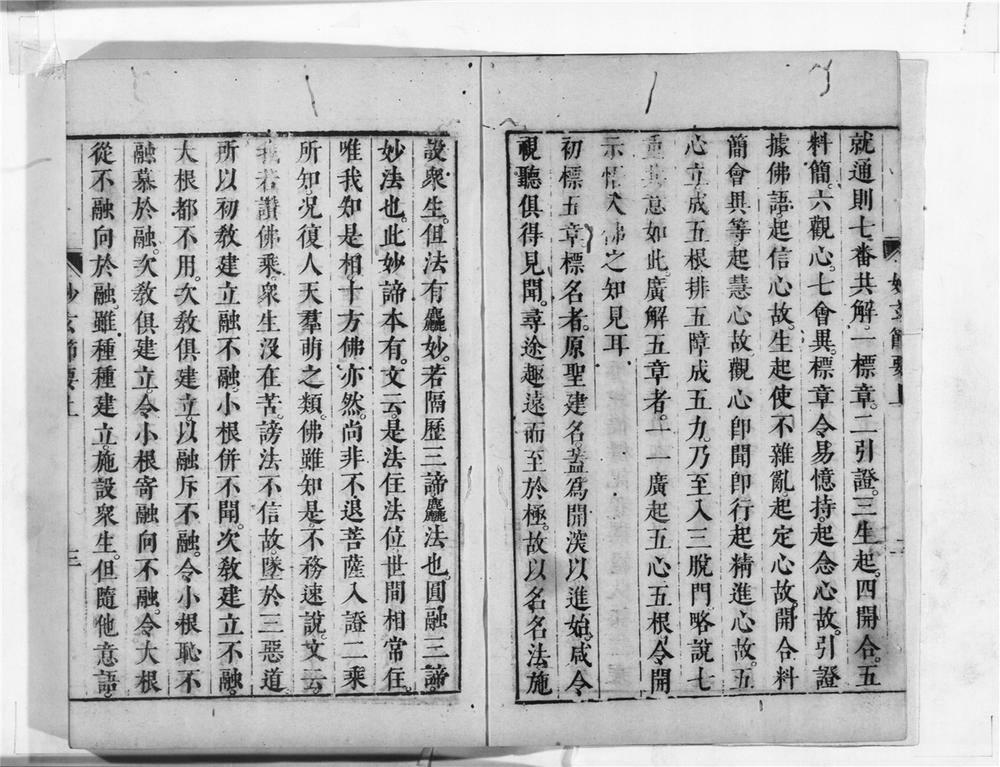 就通則七番共解。一標章。二引證。三生起。四開合。五
料簡。六觀心。七會異。標章令易憶持。起念心故。引證
據佛語。起信心故。生起使不雜亂。起定心故。開合料
簡會異等。起慧心故。觀心即聞即行。起精進心故。五
心立成五根。排五障成五力。乃至入三脫門。略說七
重其意如此。廣解五章者。一一廣起五心五根。令開
示悟入佛之知見耳
初標五章標名者。原聖建名。蓋為開深以進始。咸令
視聽俱得見聞。尋途趣遠而至於極。故以名名法施
妙玄節要上
設衆生。但法有麤妙。若隔歷三諦。麤法也。圓融三諦。
妙法也。此妙諦本有。文云。是法住法位。世間相常住。
唯我知是相。十方佛亦然。尚非不退菩薩入證二乘
所知。况復人天羣萌之類。佛雖知是。不務速說。文云。
我若讚佛乘。衆生沒在苦。謗法不信故。墜於三惡道
所以初教建立融不融。小根併不聞。次教建立不融。
大根都不用。次教俱建立。以融斥不融。令小根恥不
融慕於融。次教俱建立。令小根寄融向不融。令大根
從不融向於融。雖種種建立。施設衆生。但隨他意語。
妙玄節要上
三